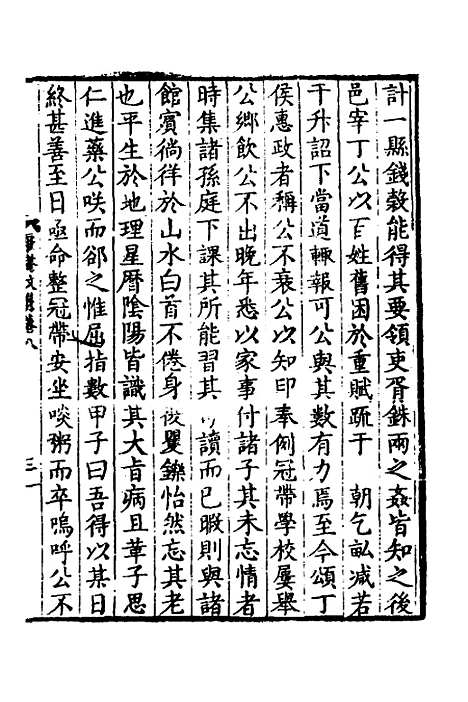 計一縣錢穀能得其要領吏胥銖兩之姦皆知之後
邑宰丁公以百姓舊困於重賦疏于　朝乞畝減若
干升詔下當道輙報可公與其數有力焉至今頌丁
侯惠政者稱公不衰公以知印奉例冠帶學校屢舉
公鄉飲公不出晚年悉以家事付諸子其未忘情者
時集諸孫庭下課其所能習其　讀而已暇則與諸
館賓徜徉於山水白首不倦身　矍鑠怡然忘其老
也平生於地理星曆陰陽皆識其大旨病且革子思
仁進藥公咲而郤之惟屈指數甲子曰吾得以某日
終甚善至日亟命整冠帶安坐啖粥而卒嗚呼公不
文集卷八
三